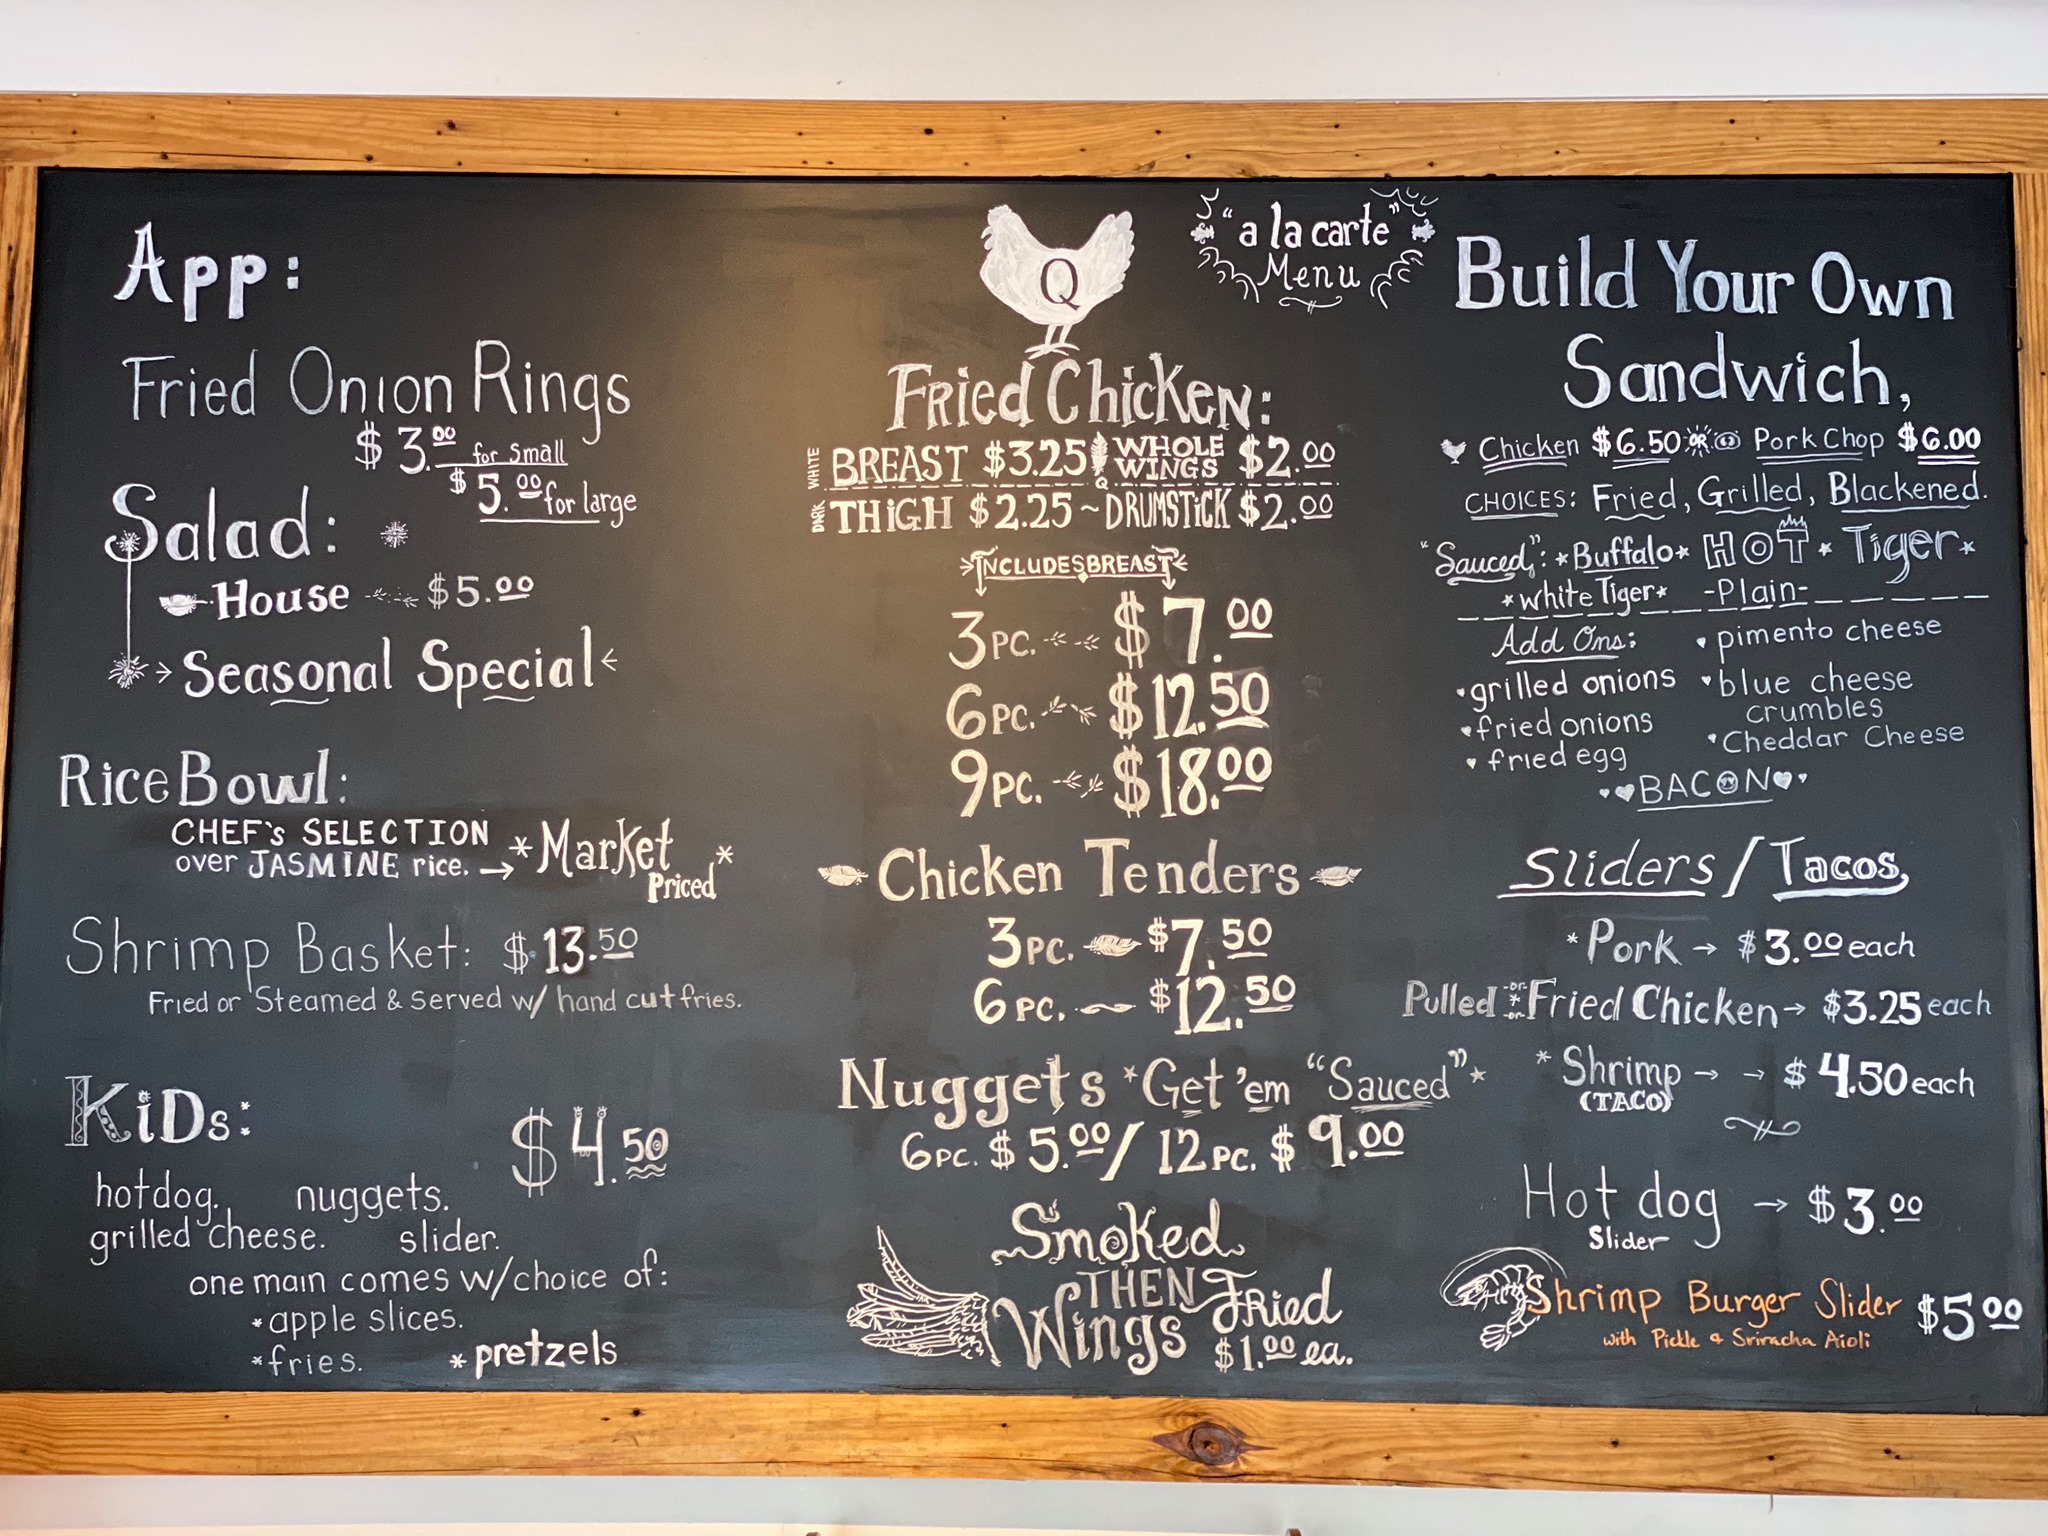 App:
Fried Onion Rings
$3.00 for Small
$5.00 for large
Salad:
House $5.00
Seasonal Special
Rice Bowl:
CHEF's SELECTION
over JASMINE rice. → *Market Priced*
Shrimp Basket: $13.50
Fried or Steamed & Served w/ hand cut fries.
KiDs: $4.50
hotdog. nuggets.
grilled cheese. slider.
one main comes w/choice of:
*apple slices.
*fries. *pretzels
Q
"a la carte"
Menu
Fried Chicken:
WHITE BREAST $3.25 WHOLE WINGS $2.00
Q
DARK THiGH $2.25 ~ DRUMSTiCK $2.00
INCLUDES BREAST
3 PC. $7.00
6 PC. $12.50
9 PC. $18.00
Chicken Tenders
3 PC. $7.50
6 PC. $12.50
Nuggets *Get 'em "Sauced"*
6 PC. $5.00 / 12 PC. $9.00
Smoked
THEN Fried
Wings $1.00 ea.
Build Your Own
Sandwich,
Chicken $6.50 OR Pork Chop $6.00
CHOICES: Fried, Grilled, Blackened.
"Sauced": *Buffalo* HOT * Tiger*
*white Tiger* -Plain-
Add Ons:
grilled onions
fried onions
fried egg
pimento cheese
blue cheese
crumbles
Cheddar Cheese
BACON
Sliders / Tacos,
*Pork → $3.00 each
Pulled -or- * -or- Fried Chicken → $3.25 each
*Shrimp → → $4.50 each
(TACO)
Hot dog → $3.00
Slider
Shrimp Burger Slider $5.00
with Pickle & Sriracha Aioli